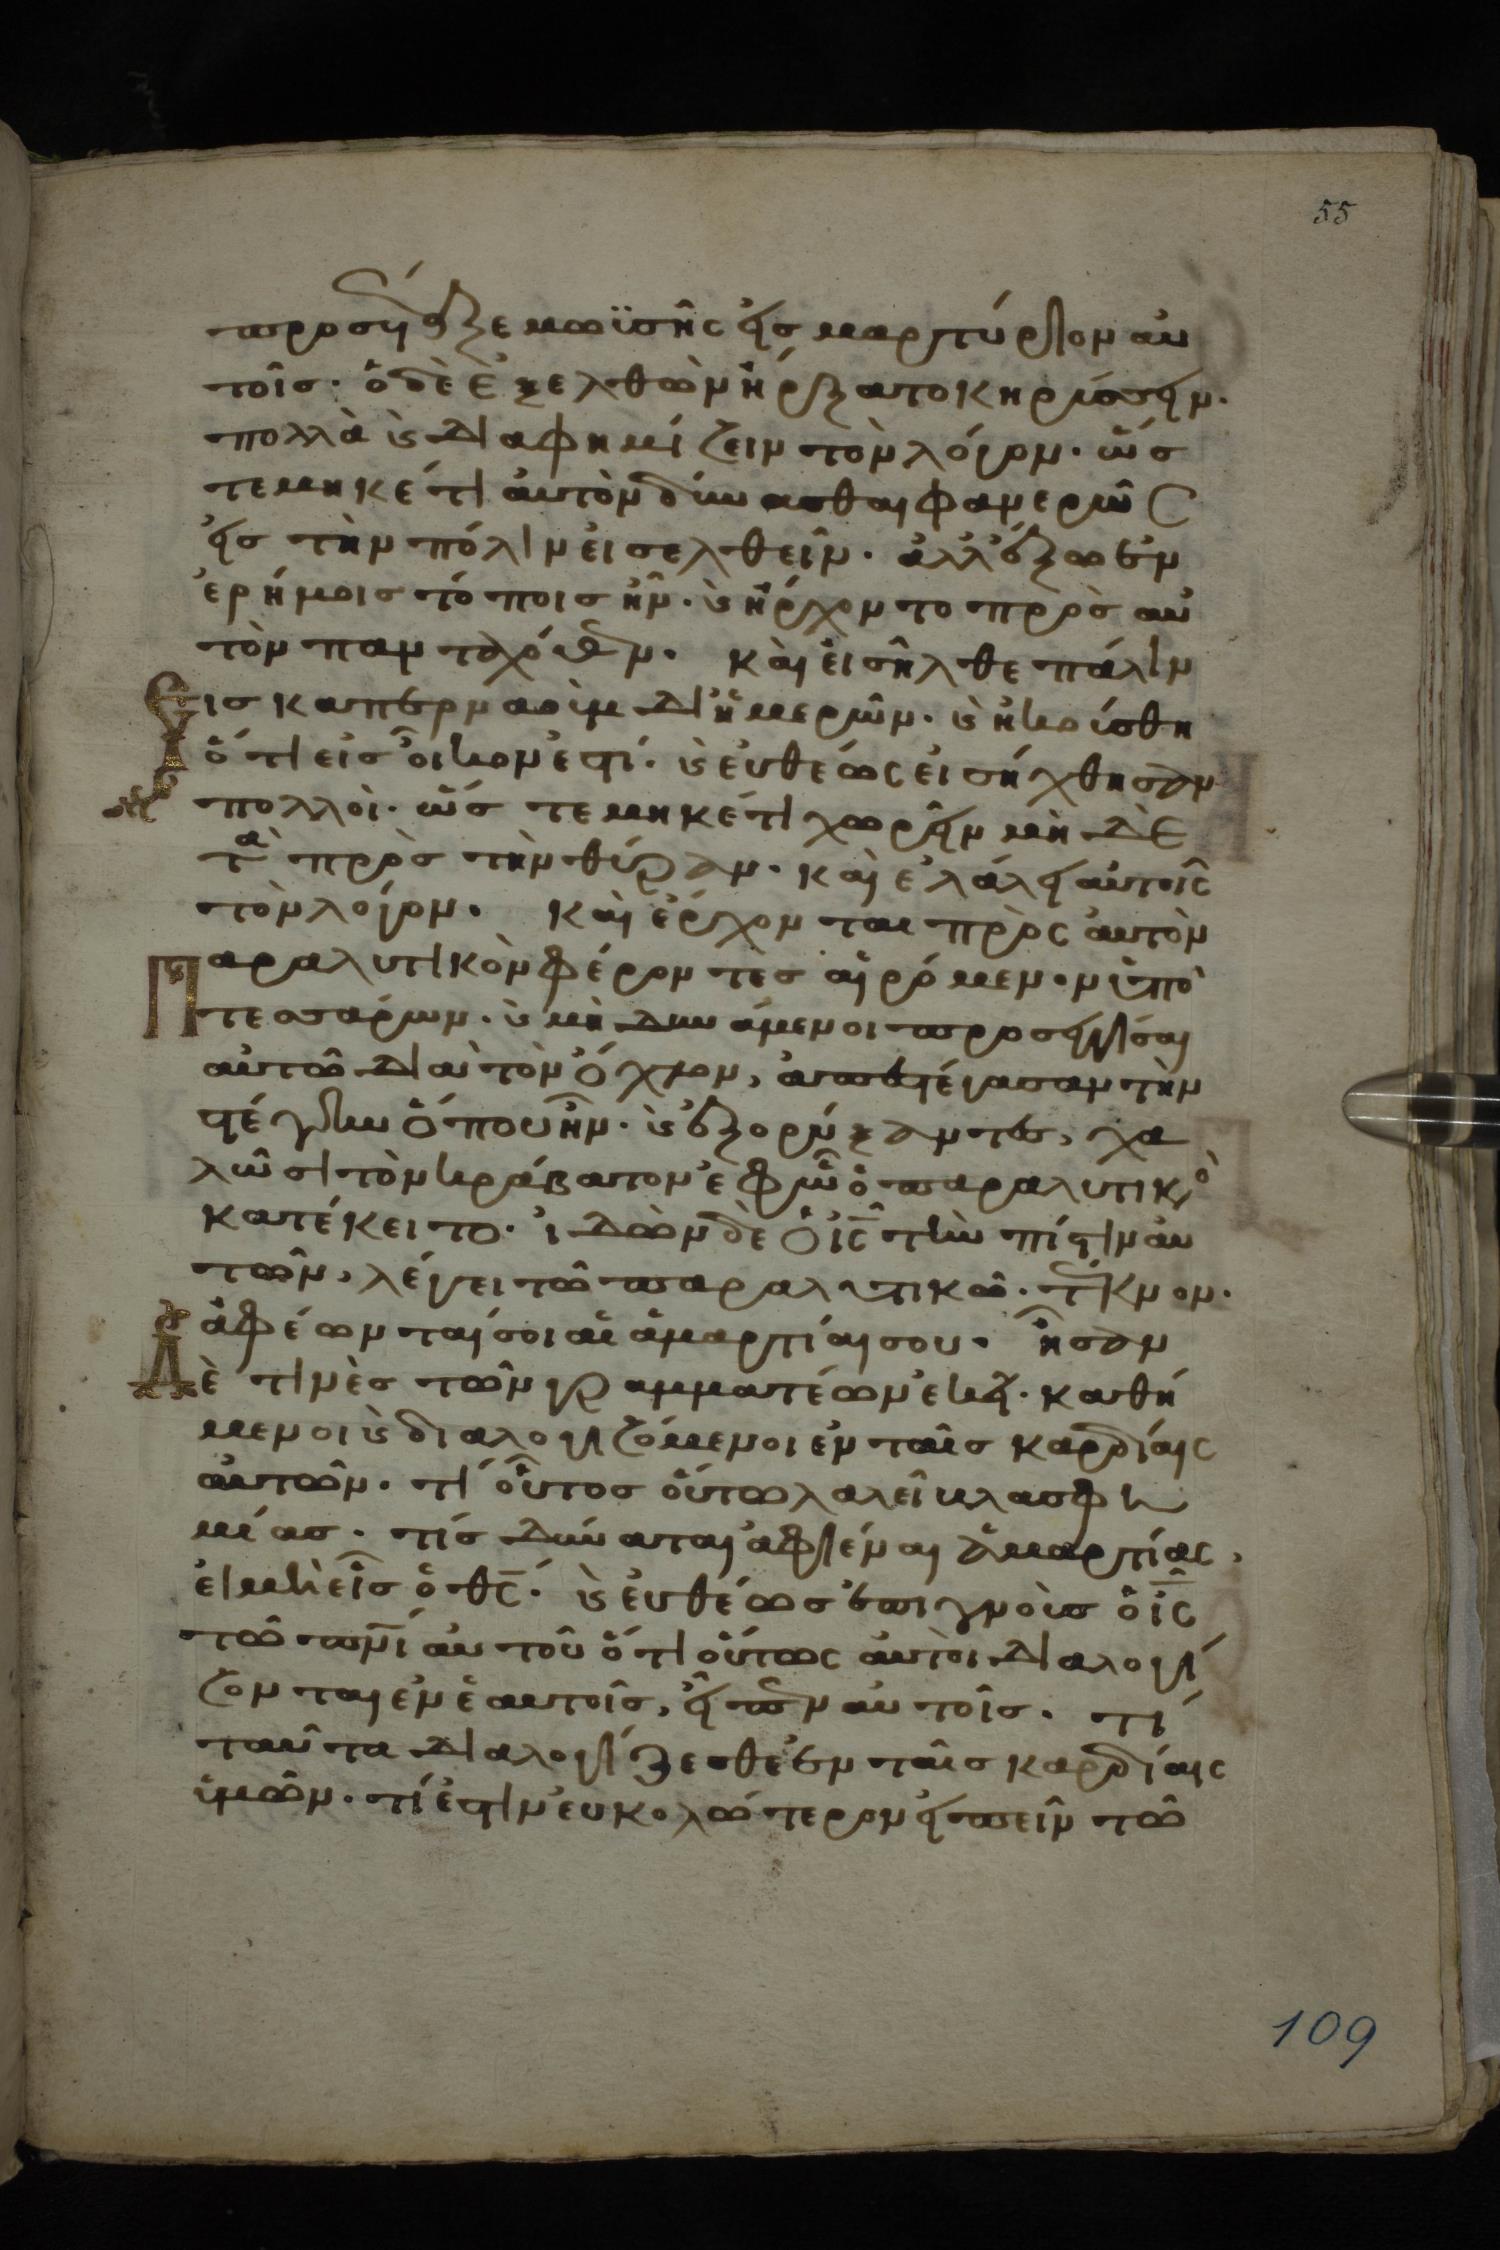 55
προσέταξε μωϋσῆς εἰς μαρτύριον αὐ
τοῖς· ὁ δὲ ἐξελθὼν ἤρξατο κηρύσσειν·
πολλὰ καὶ διαφημίζειν τὸν λόγον· ὥσ
τε μηκέτι αὐτὸν δύνασθαι φανερῶς
εἰς τὴν πόλιν εἰσελθεῖν· ἀλλ' ἔξω ἐν
ἐρήμοις τόποις ἦν· καὶ ἤρχοντο πρὸς αὐ
τὸν πανταχόθεν· καὶ εἰσῆλθε πάλιν
εἰς καπερναοὺμ δι' ἡμερῶν· καὶ ἠκούσθη
ὅτι εἰς οἶκον ἐστί· καὶ εὐθέως εἰσήχθησαν
πολλοὶ· ὥστε μηκέτι χωρεῖν μὴ δὲ
τὰ πρὸς τὴν θύραν· καὶ ἐλάλει αὐτοῖς
τὸν λόγον· καὶ ἔρχονται πρὸς αὐτὸν
παραλυτικὸν φέροντες αἰρόμενον ὑπὸ
τεσσάρων· καὶ μὴ δυνάμενοι προσεγγίσαι
αὐτῷ διὰ τὸν ὄχλον, ἀπεστέγασαν τὴν
στέγην ὅπου ἦν· καὶ ἐξορύξαντες, χα
λῶσι τὸν κράβατον ἐφ' ᾧ ὁ παραλυτικὸ
κατέκειτο· ἰδὼν δὲ ὁ ις τὴν πίστιν αὐ
τῶν, λέγει τῷ παραλυτικῷ· τέκνον·
ἀφέωνταί σοι αἱ ἁμαρτίαι σου· ἦσαν
δὲ τινὲς τῶν γραμματέων ἐκεῖ· καθή
μενοι καὶ διαλογιζόμενοι ἐν ταῖς καρδίαις
αὐτῶν· τί οὗτος οὕτω λαλεῖ βλασφη
μίας· τίς δύναται ἀφιέναι ἁμαρτίας,
εἰ μὴ εἷς ὁ θς· καὶ εὐθέως ἐπιγνοὺς ὁ ις
τῷ πνι αὐτοῦ ὅτι οὕτως αὐτοὶ διαλογί
ζονται ἐν ἑαυτοῖς, εἶπεν αὐτοῖς· τί
ταῦτα διαλογίζεσθε ἐν ταῖς καρδίαις
ὑμῶν· τί ἐστιν εὐκολώτερον εἰπεῖν τῷ
109